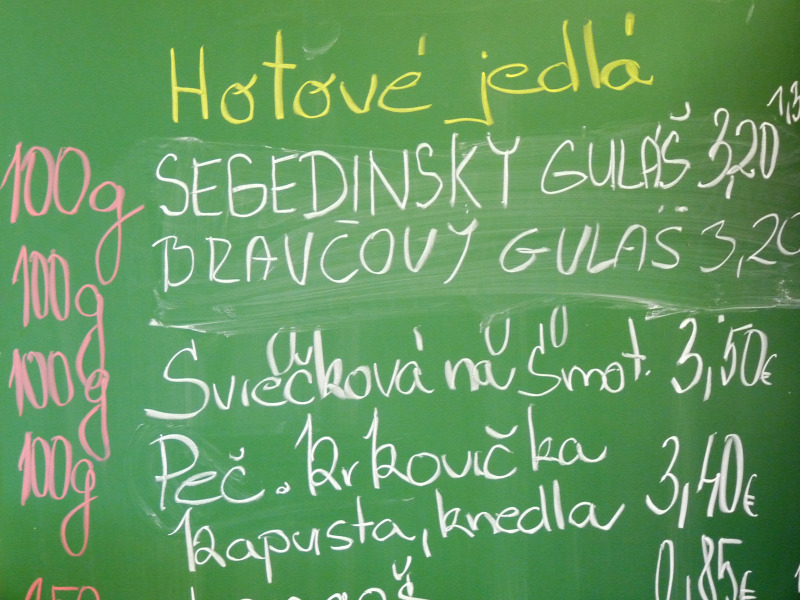 Hotové jedlá
100g SEGEDINSKÝ GULÁŠ 3,20
100g BRAVČOVÝ GULAŠ 3,20
100g Sviečková na Smot. 3,50€
100g Peč. Krkovička 3,40€
kapusta, knedla
150 0,85€